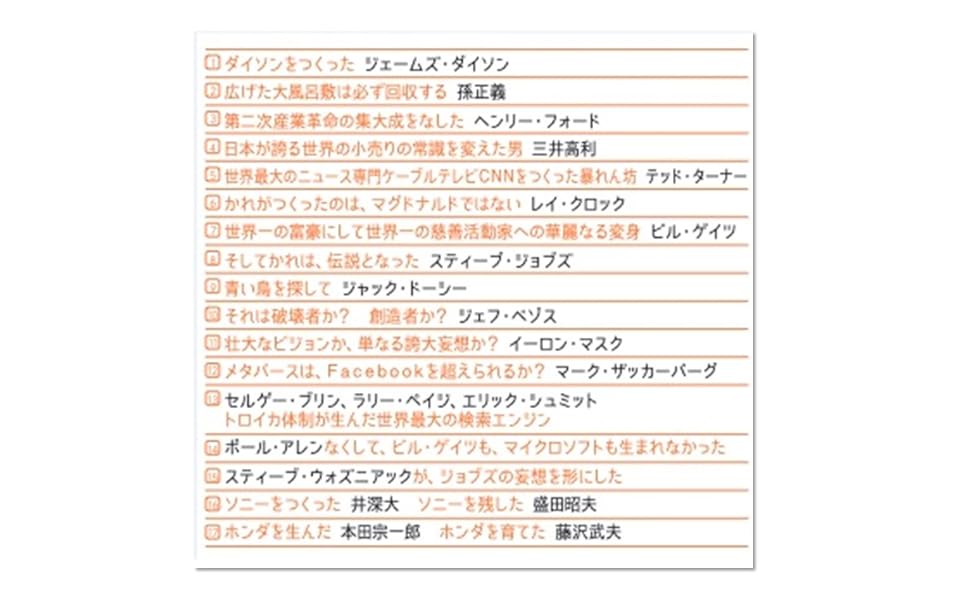 1 ダイソンをつくった ジェームズ・ダイソン
2 広げた大風呂敷は必ず回収する 孫正義
3 第二次産業革命の集大成をなした ヘンリー・フォード
4 日本が誇る世界の小売りの常識を変えた男 三井高利
5 世界最大のニュース専門ケーブルテレビCNNをつくった暴れん坊 テッド・ターナー
6 かれがつくったのは、マグドナルドではない レイ・クロック
7 世界一の富豪にして世界一の慈善活動家への華麗なる変身 ビル・ゲイツ
8 そしてかれは、伝説となった スティーブ・ジョブズ
9 青い鳥を探して ジャック・ドーシー
10 それは破壊者か？ 創造者か？ ジェフ・ベゾス
11 壮大なビジョンか、単なる誇大妄想か？ イーロン・マスク
12 メタバースは、Facebookを超えられるか？ マーク・ザッカーバーグ
13 セルゲー・ブリン、ラリー・ペイジ、エリック・シュミット
トロイカ体制が生んだ世界最大の検索エンジン
14 ポール・アレンなくして、ビル・ゲイツも、マイクロソフトも生まれなかった
15 スティーブ・ウォズニアックが、ジョブズの妄想を形にした
16 ソニーをつくった 井深大 ソニーを残した 盛田昭夫
17 ホンダを生んだ 本田宗一郎 ホンダを育てた 藤沢武夫